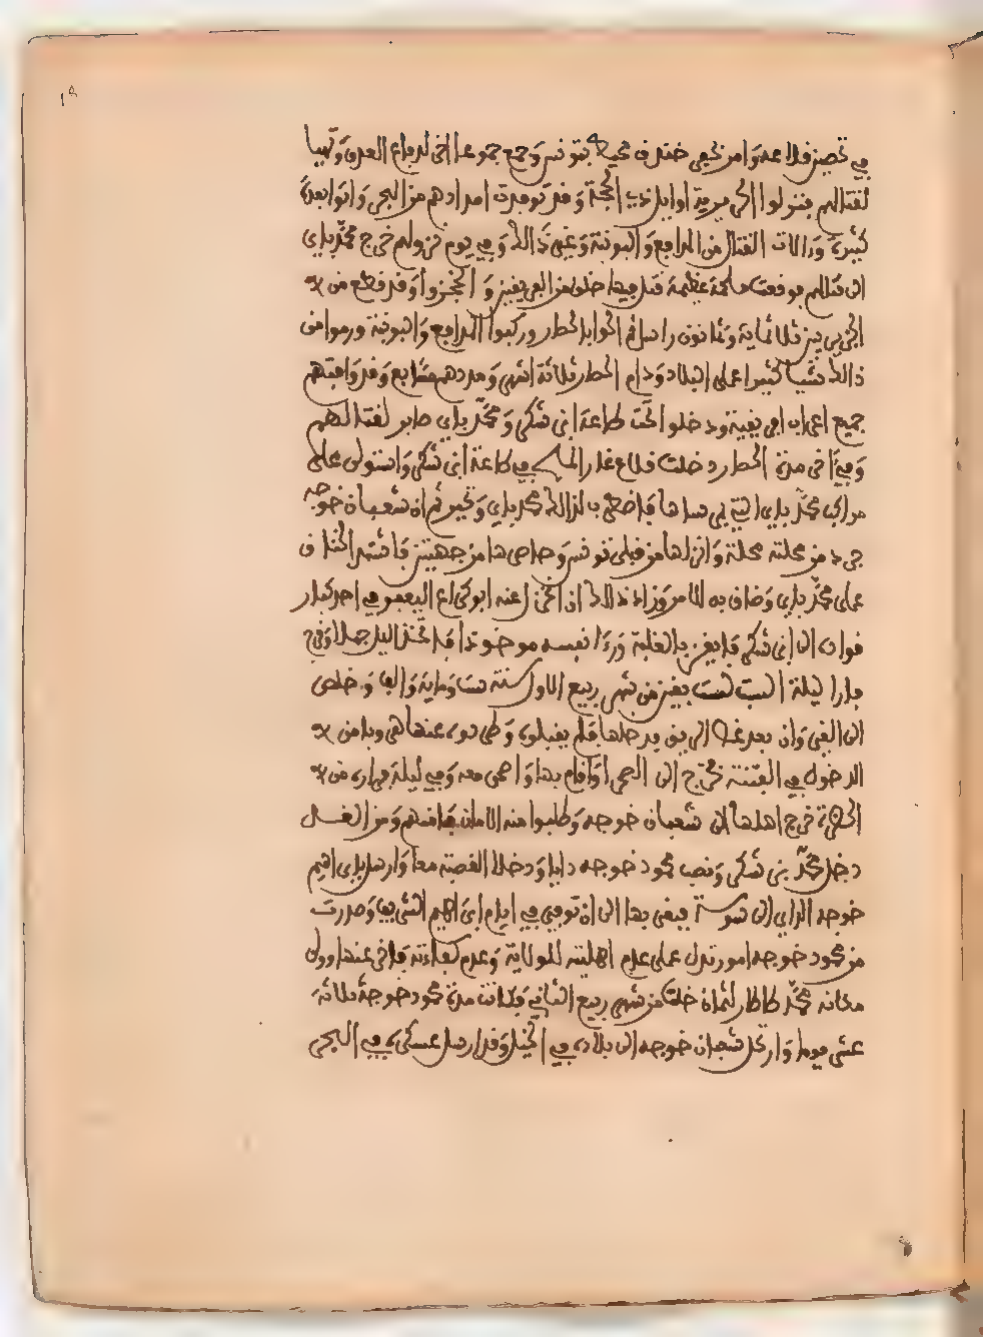 ١٩
في تحصين قلاعه وامر بحفر خندق محيط بتونس وجمع جموعا اخر لدفاع العدو وتهيا
لقتالهم فنزلوا الحريرية اوايل ذي الحجة وقد توفرت امدادهم من البحر واتوا بعدة
كثيرة والات القتال من المدافع والبونبة وغير ذالك وفي يوم نزولهم خرج محمد باي
الى قتالهم فوقعت ملحمة عظيمة قتل فيها خلق من الفريقين و انحجزوا وقد قطع من
الجزيريين ثلاثماية وثمانون راسا ثم الحوا بالحطار وركبوا المدافع والبونبة ورموا من
ذالك شيا كثيرا على البلاد ودام الحطار ثلاثة اشهر ومددهم متتابع وقد وافتهم
جميع اعراب افريقية ودخلوا تحت طاعة ابن شكر ومحمد باي صابر لقتالهم
وفي اخر مدة الحطار دخلت قلاع غار الملح في طاعة ابن شكر واستولى على
مراكب محمد باي التي بمرساها فاضطرب لذالك محمد باي وتحير ثم ان شعبان خوجه
جرد من محلته محلة وانزلها من قبلي تونس وحاصرها من جهتين فاشتد الخناق
على محمد باي وضاق به الامر وزاد ذالك ان انخزل عنه ابو كراع اليعفوفي احد كبار
قواده الى ابن شكر فايقن بالغلبة ورءا نفسه ماخوذا فاتخذ اليل جملا وخرج
فارا ليلة السبت لست بقين من شهر ربيع الاول سنة ست وماية والف وخلص
الى القيروان بعد غلط الطريق يدخلها فلم يقبلوه وطردوه عنها هروبا من
الدخول في الفتنة فخرج الى الصحرا واقام بها واحمى معه وفي ليلة فراره من
الحضرة خرج اهلها الى شعبان خوجه وطلبوا منه الامان فامنهم ومن الغد
دخل محمد بن شكر ونصب محمود خوجه دايا ودخلا القصبة معا وارسل بابراهيم
خوجه الداي الى سوسة فبقى بها الى ان توفي في ايام ابراهيم الشريف وصدرت
من محمود خوجه امور تدل على عدم اهليته للولاية وعدم كفاءته فاخر عنها وولى
مكانه محمد طاطار لثمان خلت من شهر ربيع الثاني فكانت مدة محمود خوجه ثلاثة
عشر يوما وارتحل شعبان خوجه الى بلاده في الخيل وقد ارسل عسكره في البحر